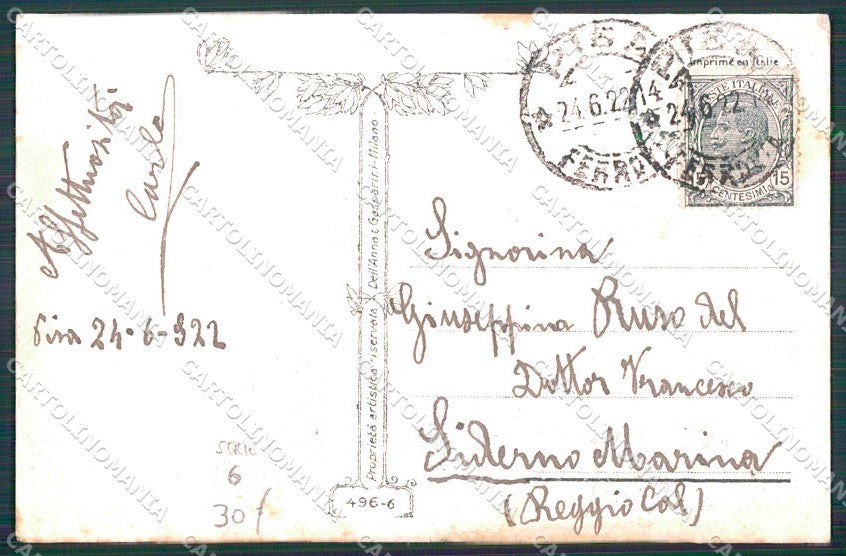 Affettuosità
Carlo
Pisa 24-6-922
SERIE
6
30/
Proprietà artistica riservata
Dell'Anna & Gasparini - Milano
496-6
PISA
24.6.22 14
FERROVIA
PISA
24.6.22
FERROVIA
Imprimé en Italie
POSTE ITALIANE
15
CENTESIMI
15
Signorina
Giuseppina Ruso del
Dottor Francesco
Siderno Marina
(Reggio Cal)
CARTOLINOMANIA